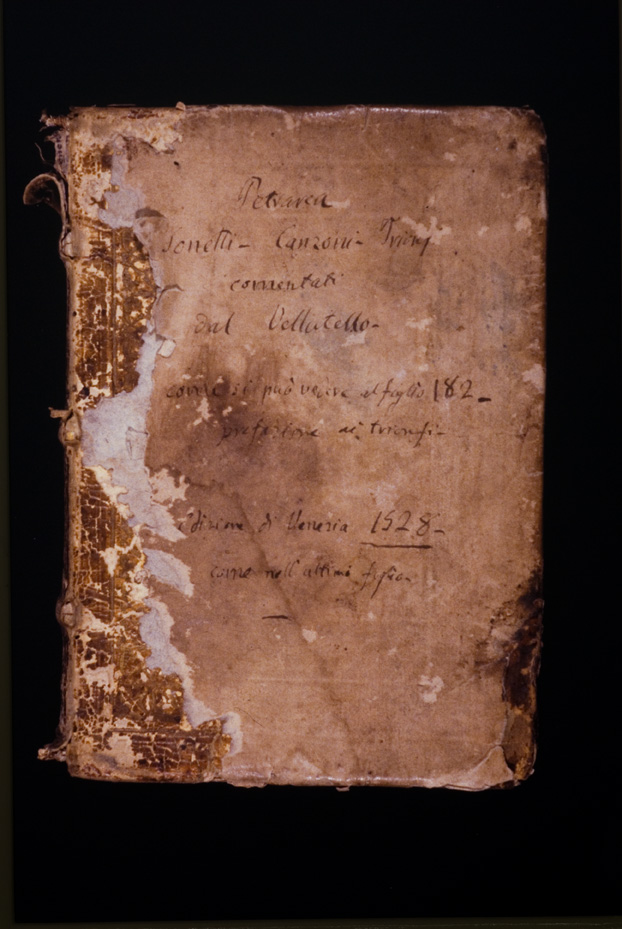 Petrarca
Sonetti - Canzoni - Trionf
comentati
dal Vellutello -
come si può vedere al foglio 182 -
prefazione ai trionfi -
Edizione di Venezia 1528 -
come nell'ultimo foglio -